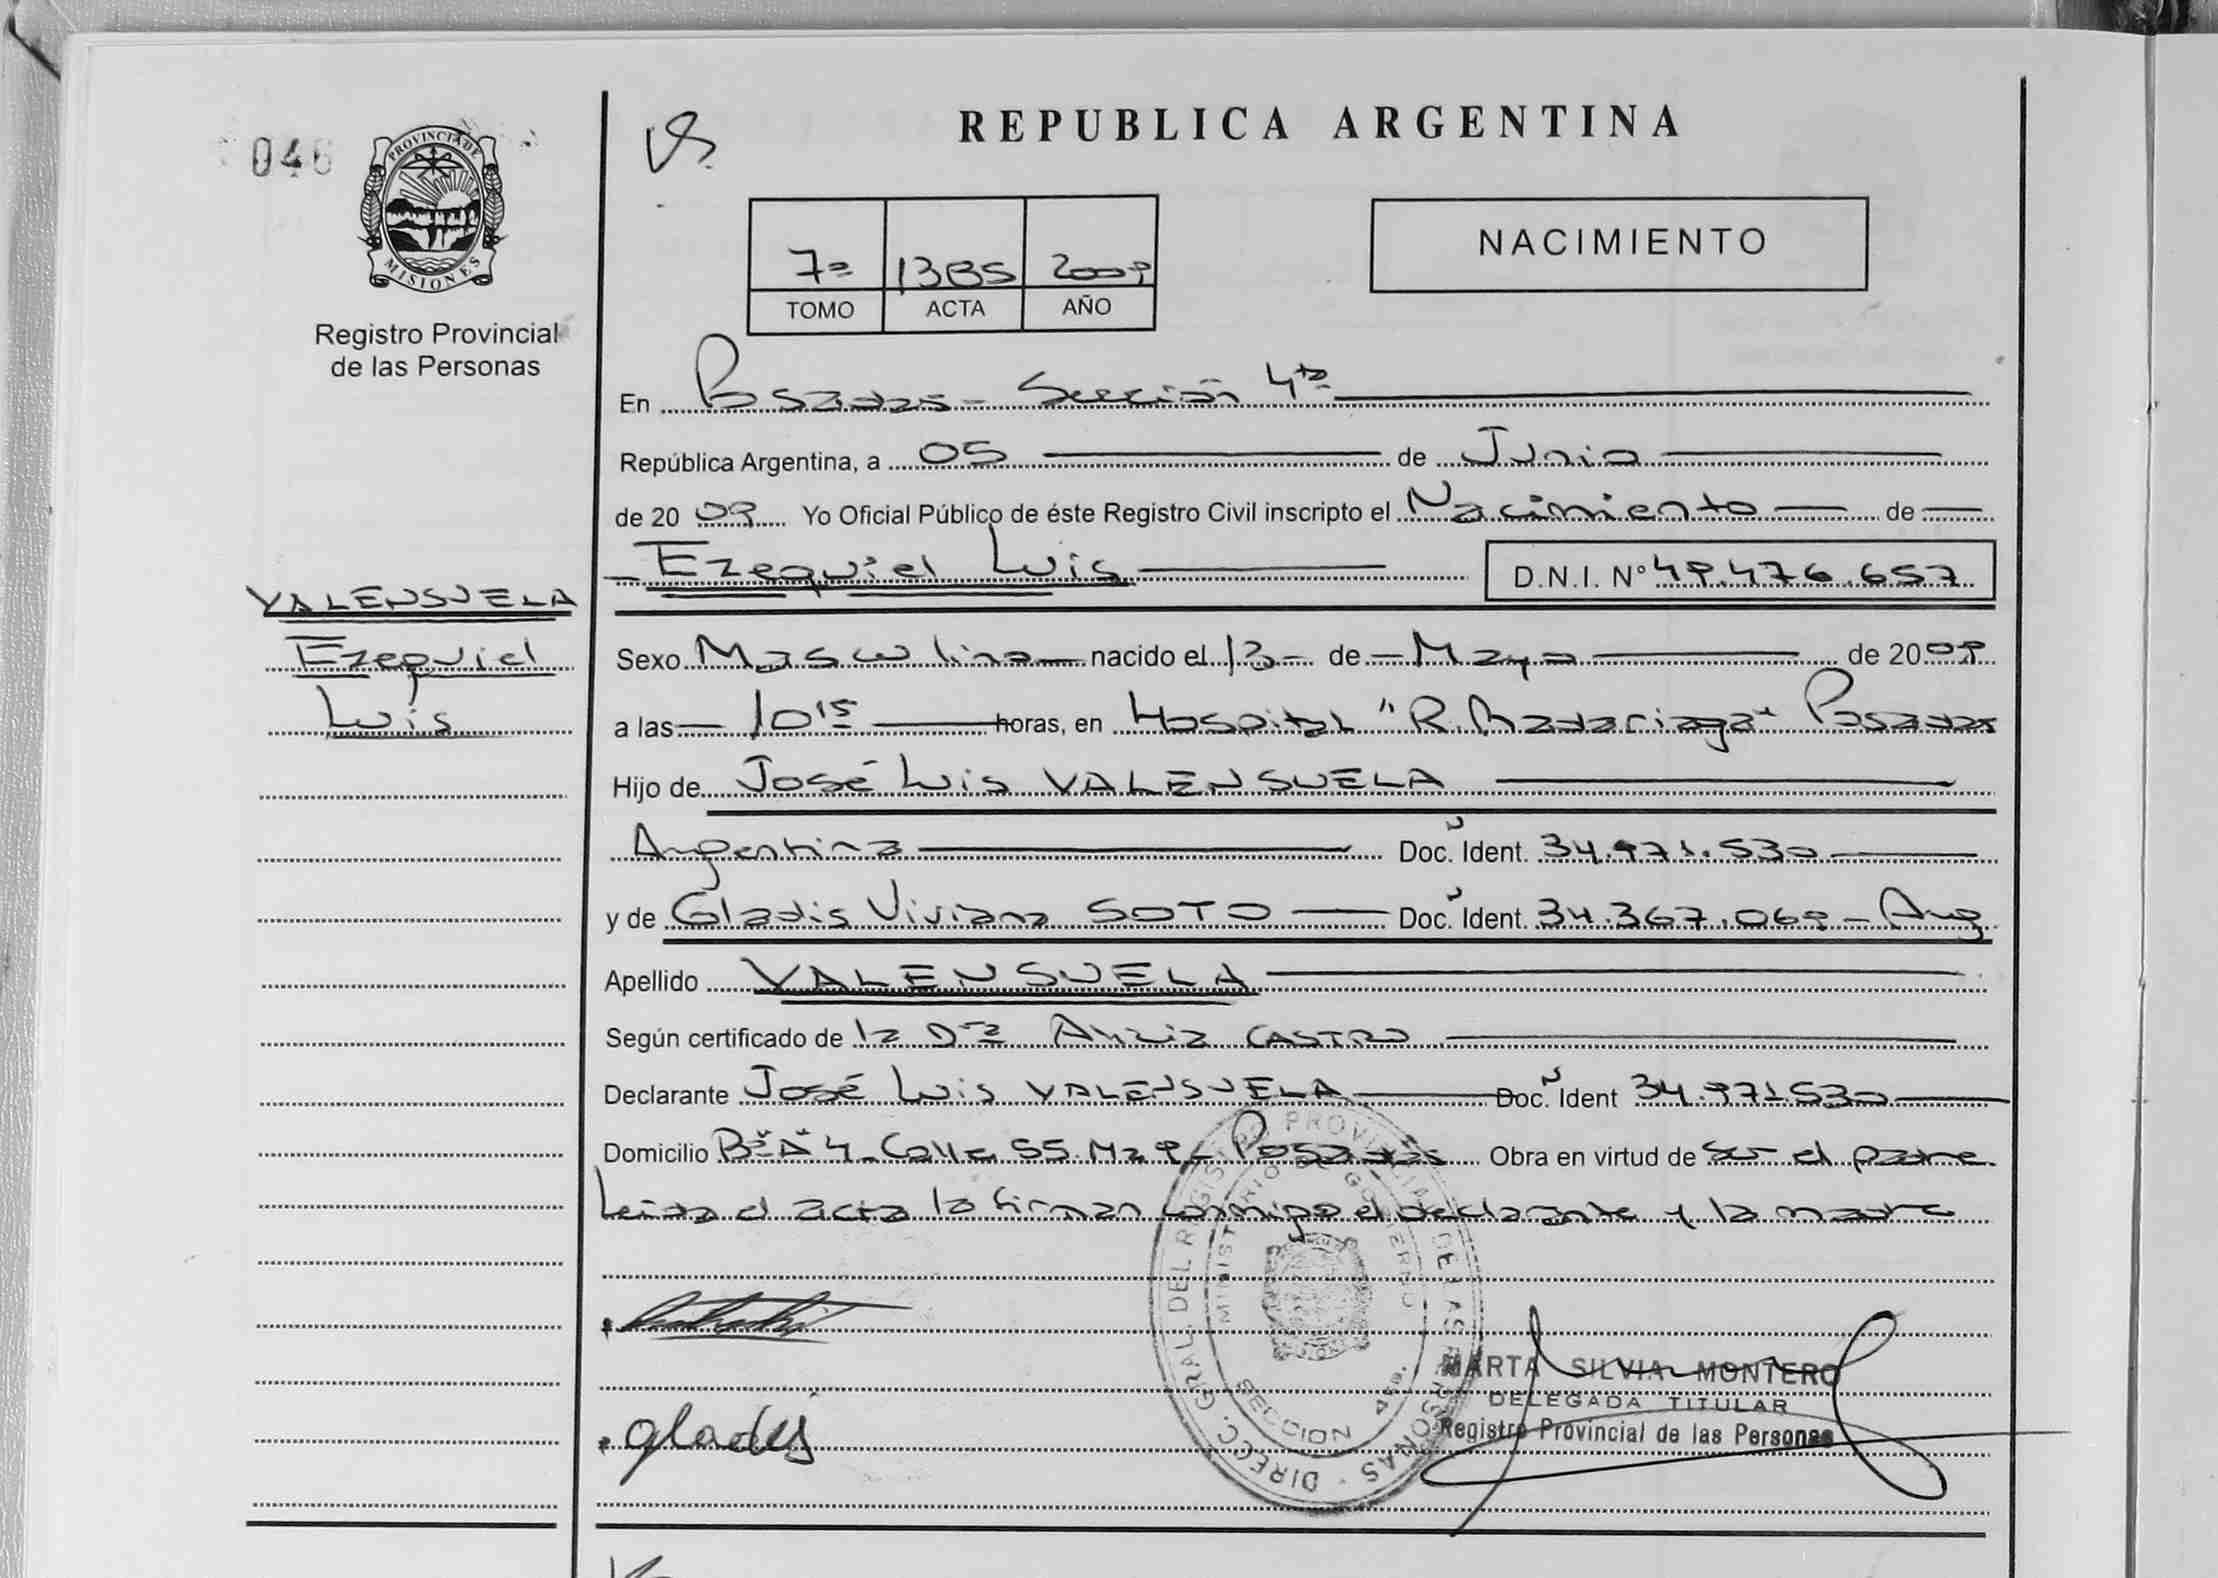 046
PROVINCIA DE MISIONES
Registro Provincial
de las Personas
REPUBLICA ARGENTINA
7º 1385 2009
TOMO ACTA AÑO
NACIMIENTO
En Posadas - Sección 4ta
República Argentina, a 05 de Junio
de 20 09 Yo Oficial Público de éste Registro Civil inscripto el Nacimiento de
Ezequiel Luis D.N.I. Nº 49.476.657
VALENSUELA
Ezequiel
Luis
Sexo Masculino nacido el 13 de Mayo de 2009
a las 10 15 horas, en Hospital "R. Madariaga" Posadas
Hijo de José Luis VALENSUELA
Argentina Doc. Ident. 34.971.530
y de Gladis Viviana SOTO Doc. Ident. 34.367.069 - Arg
Apellido VALENSUELA
Según certificado de la Dra CASTRO
Declarante José Luis VALENSUELA Doc. Ident 34.971.530
Domicilio Bº A 4 - Calle 55 Mz 9 - Posadas Obra en virtud de ser el padre
Leída el acta la firman conmigo el declarante y la madre
gladis
DIRECC. GRAL. DEL REGISTRO PROVINCIAL DE LAS PERSONAS
MINISTERIO DE GOBIERNO
SECCION 4ta.
MARTA SILVIA MONTERO
DELEGADA TITULAR
Registro Provincial de las Personas